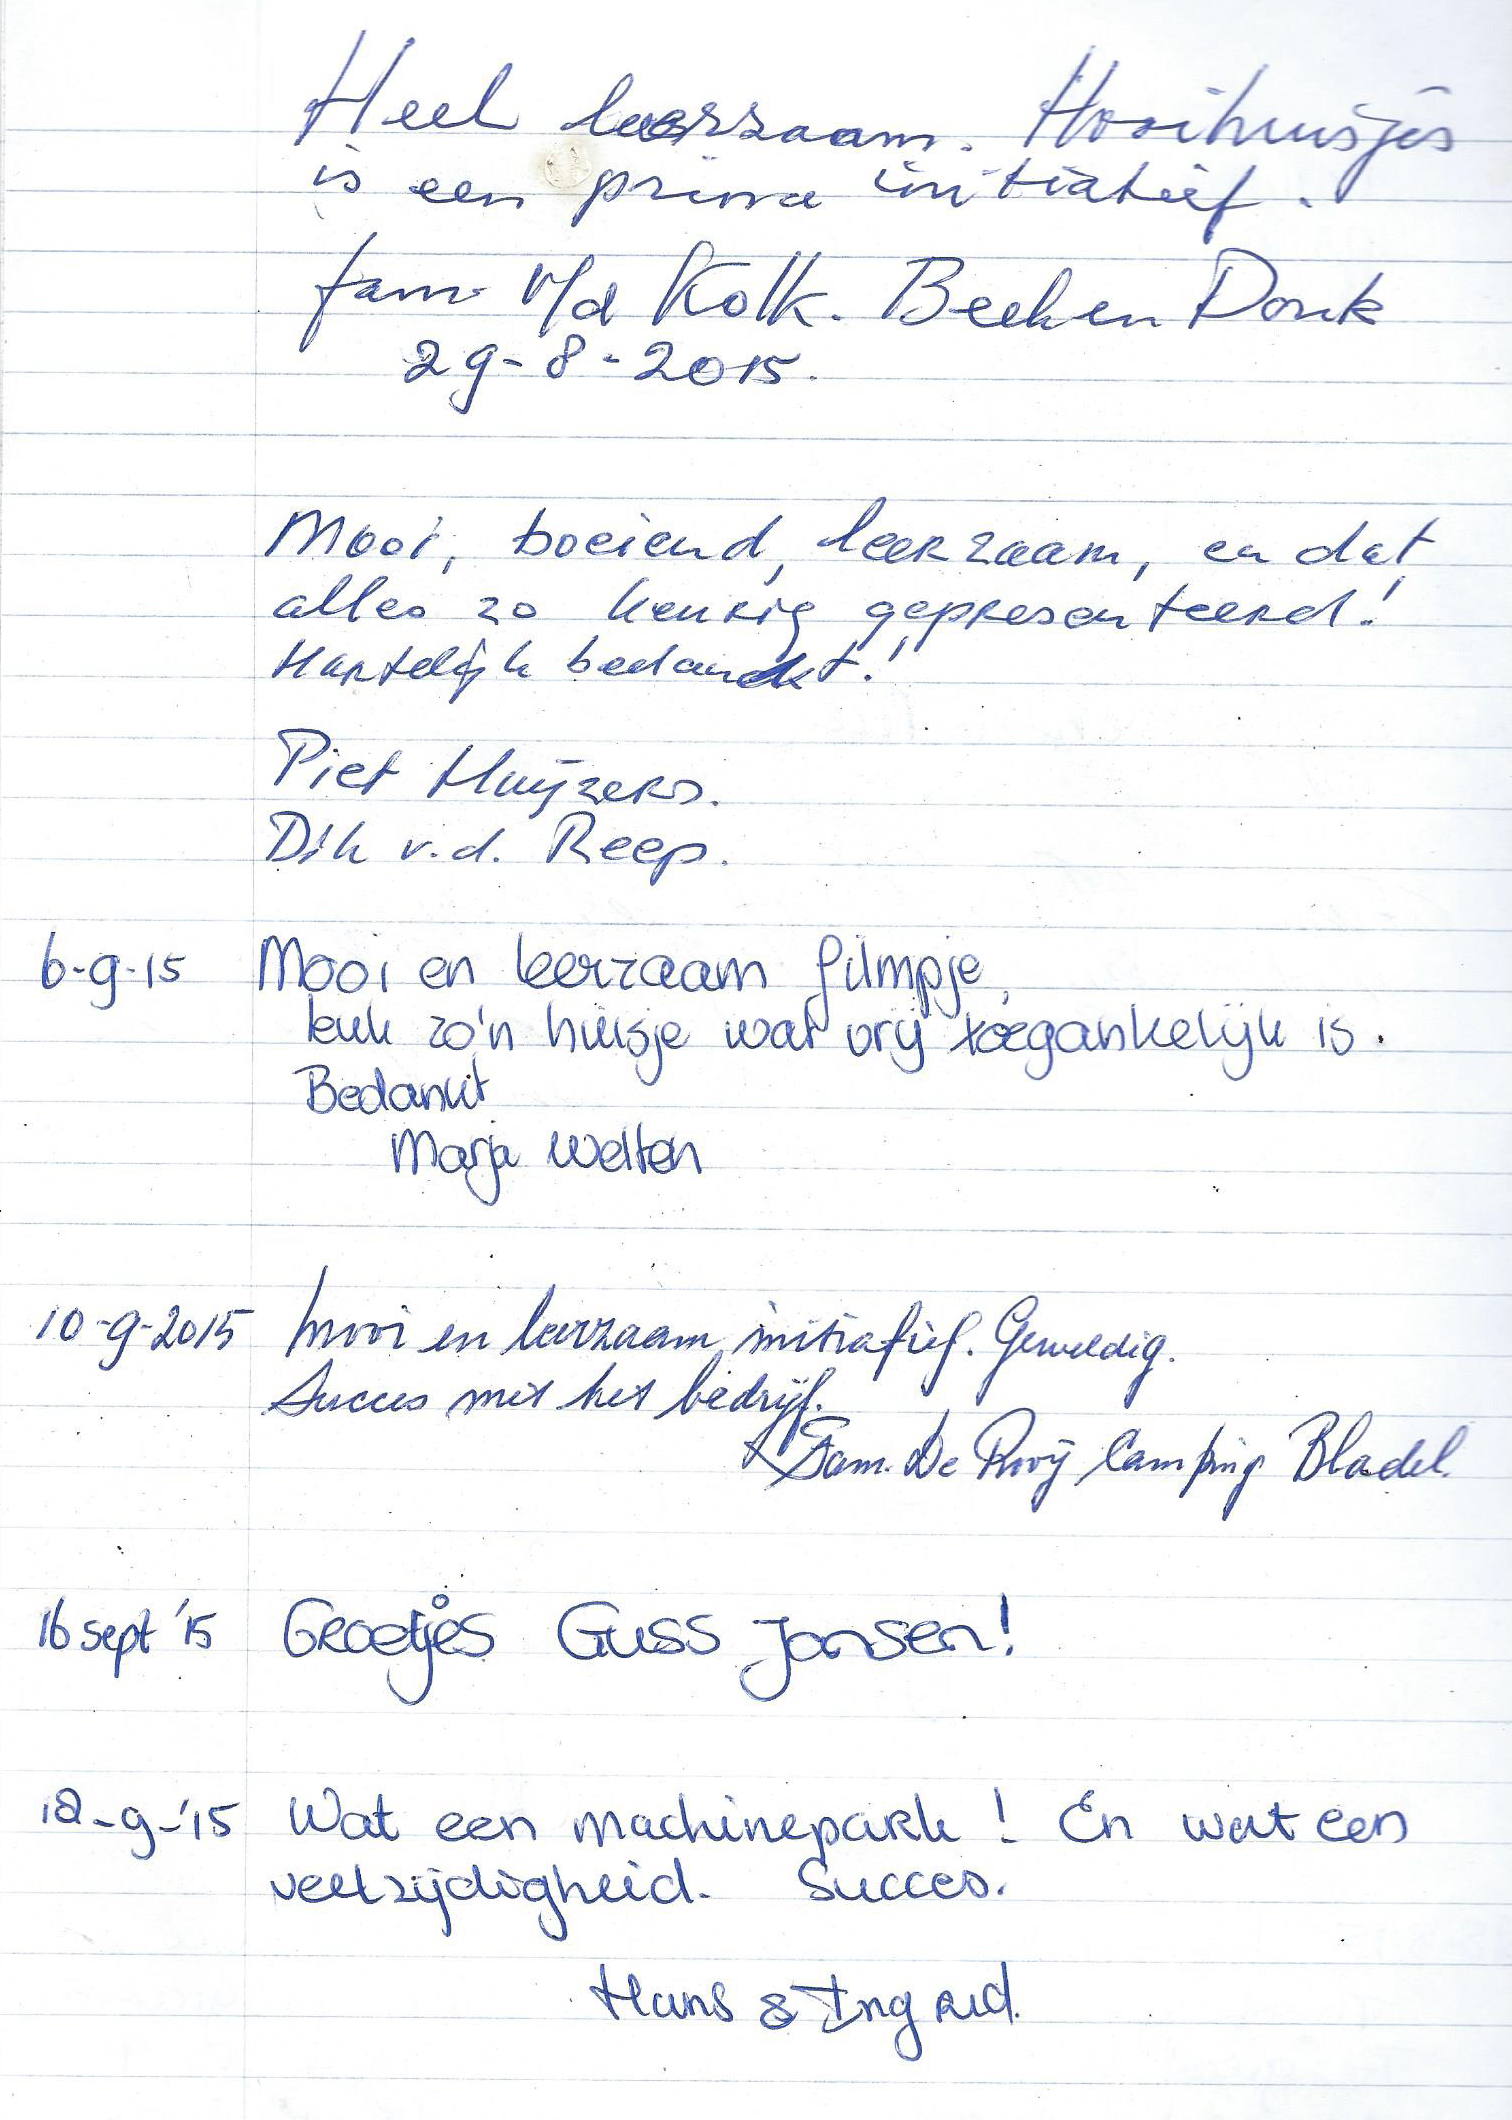 Heel leerzaam. Hooihuisjes
is een prima initiatief.
fam v/d Kolk. Beek en Donk
29-8-2015.
Mooi, boeiend, leerzaam, en dat
alles zo keurig gepresenteerd!
Hartelijk bedankt!
Piet Huijzers.
Dik v.d. Reep.
6-9-15 Mooi en leerzaam filmpje,
leuk zo'n huisje wat vrij toegankelijk is.
Bedankt
Marja Welten
10-9-2015 Mooi en leerzaam initiatief. Geweldig.
Succes met het bedrijf.
Fam. De Rooij Camping Bladel.
16 sept '15 Groetjes Guss Jansen!
18-9-'15 Wat een machinepark! En wat een
veelzijdigheid. Succes.
Hans & Ingrid.